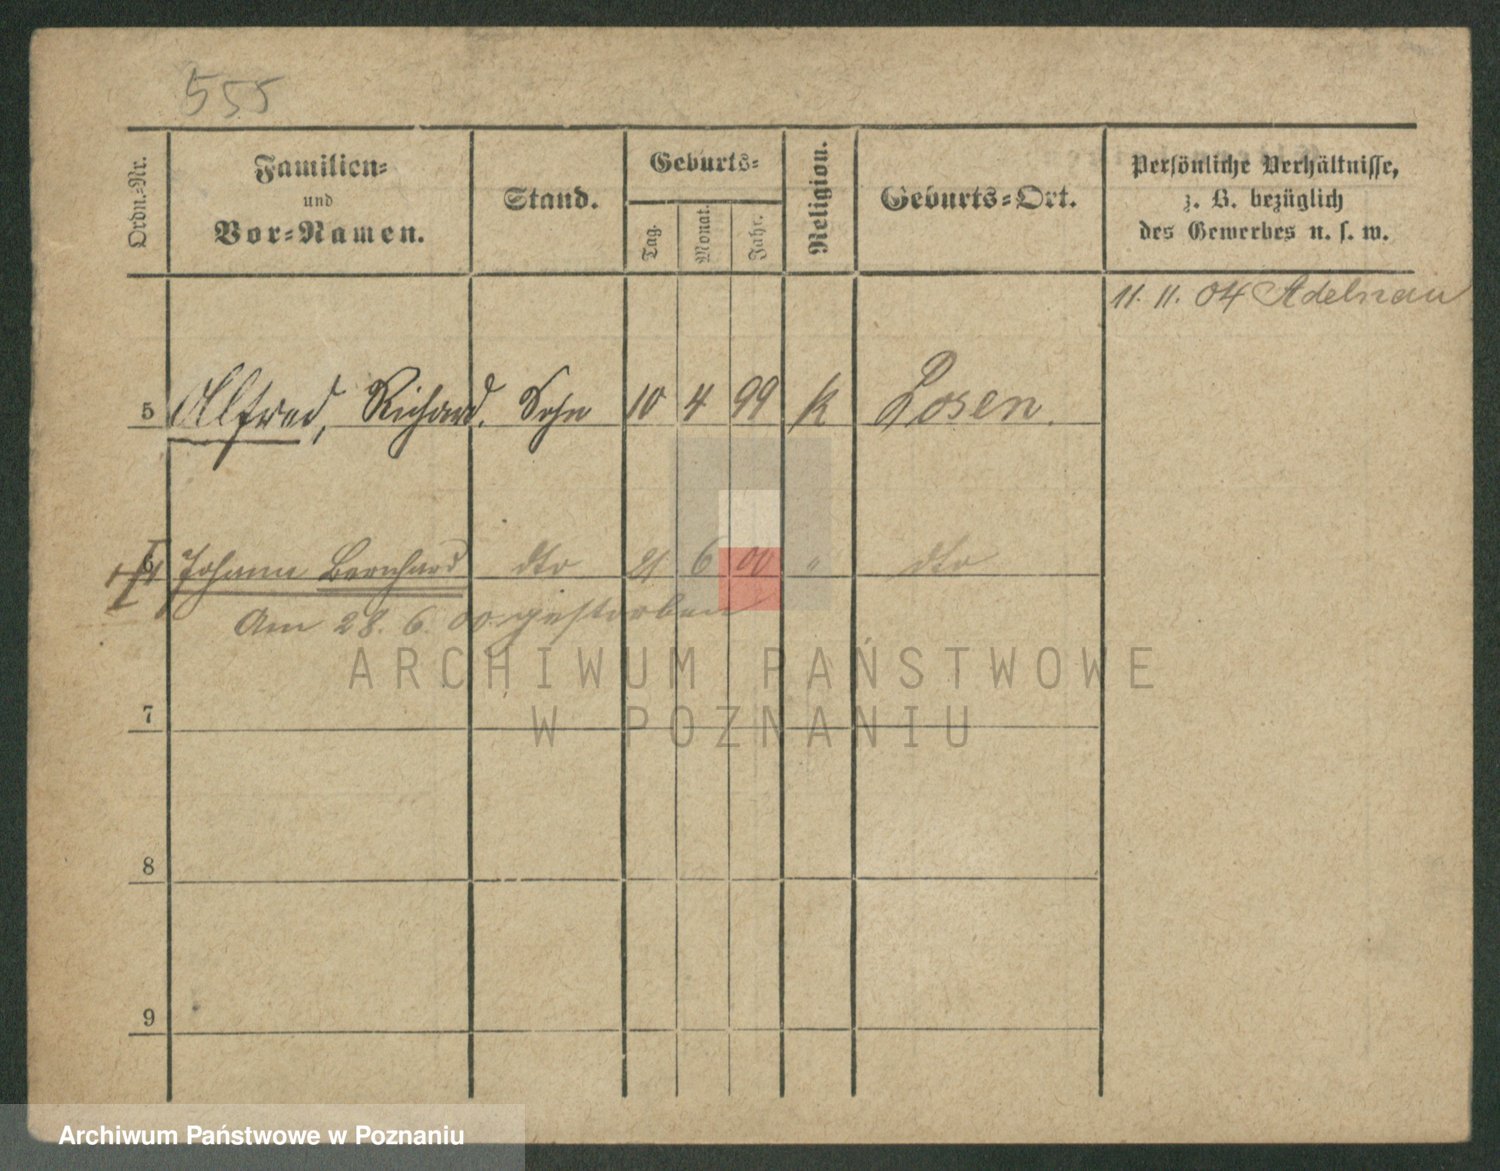 555
Ordn.-Nr.
Familien-
und
Vor-Namen.
Stand.
Geburts-
Tag.
Monat.
Jahr.
Religion.
Geburts-Ort.
Persönliche Verhältnisse,
z. B. bezüglich
des Gewerbes u. s. w.
11. 11. 04 Adelnau
5 Alfred, Richard. Sohn 10 4 99 k Posen.
6 Johann Bernhard dto 21 6 00 " dto
Am 28. 6. 00 gestorben
ARCHIWUM PAŃSTWOWE
W POZNANIU
7
8
9
Archiwum Państwowe w Poznaniu